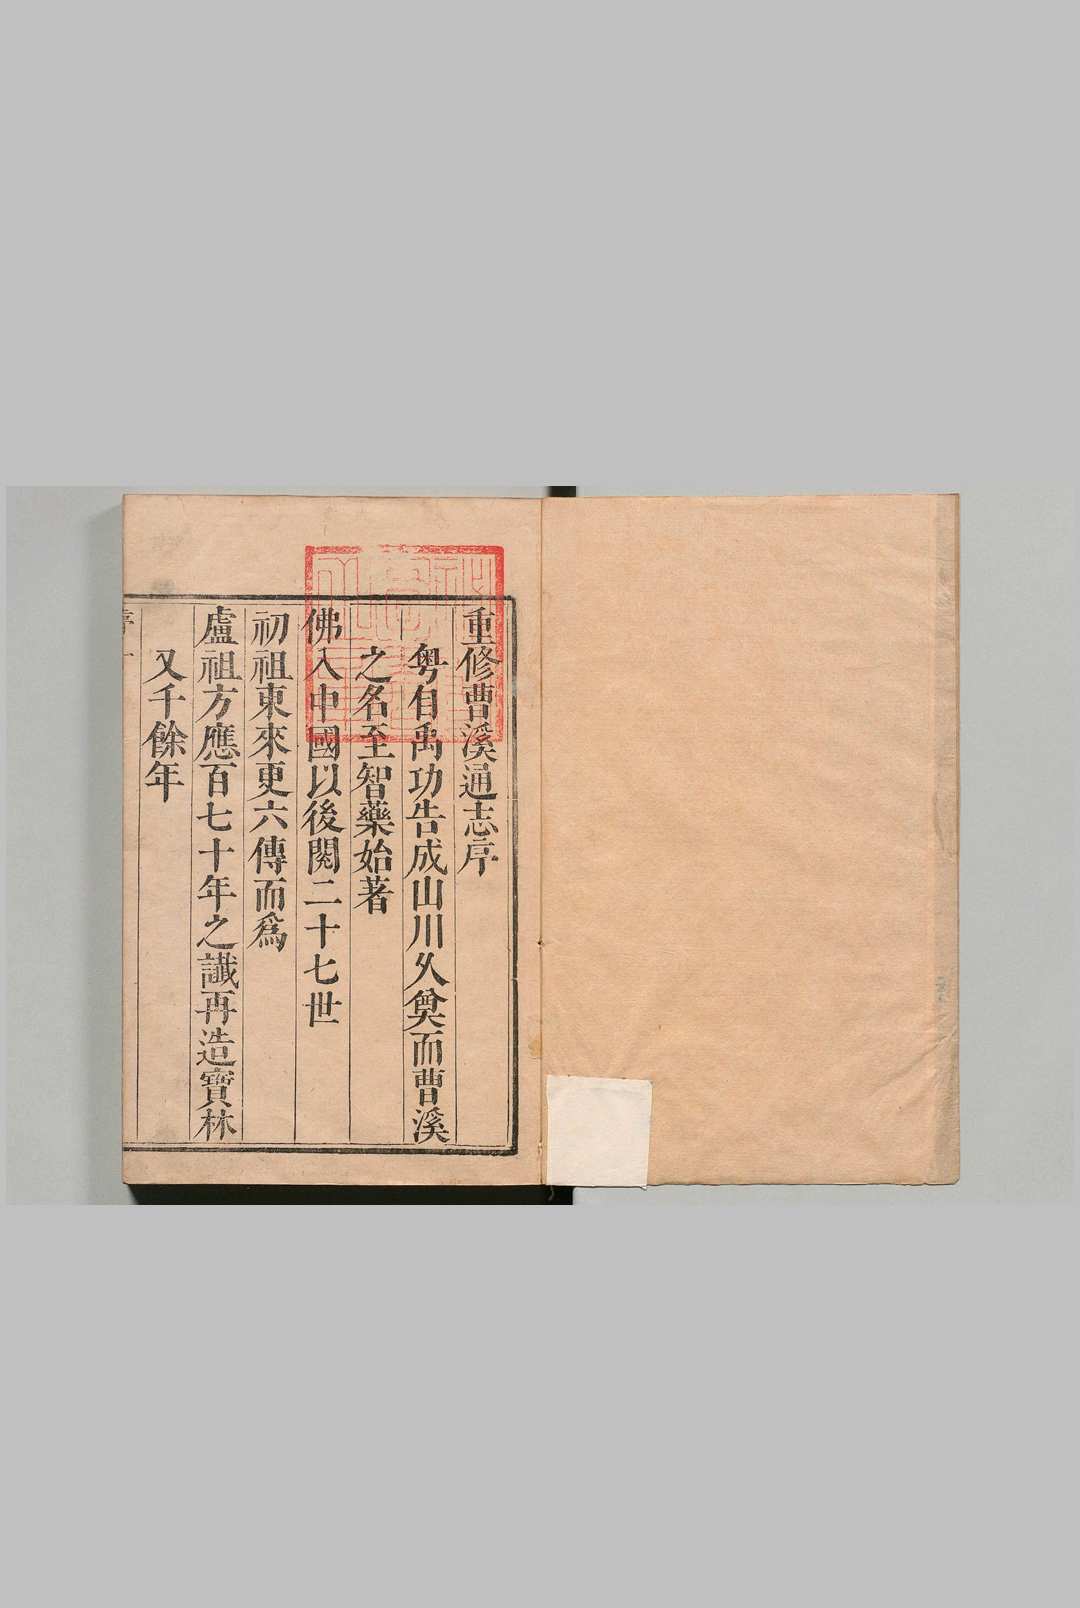 重修曹溪通志序
粤自禹功告成山川久奠而曹溪
之名至智藥始著
佛入中國以後閱二十七世
初祖東來更六傳而爲
盧祖方應百七十年之讖再造寶林
又千餘年
序 一